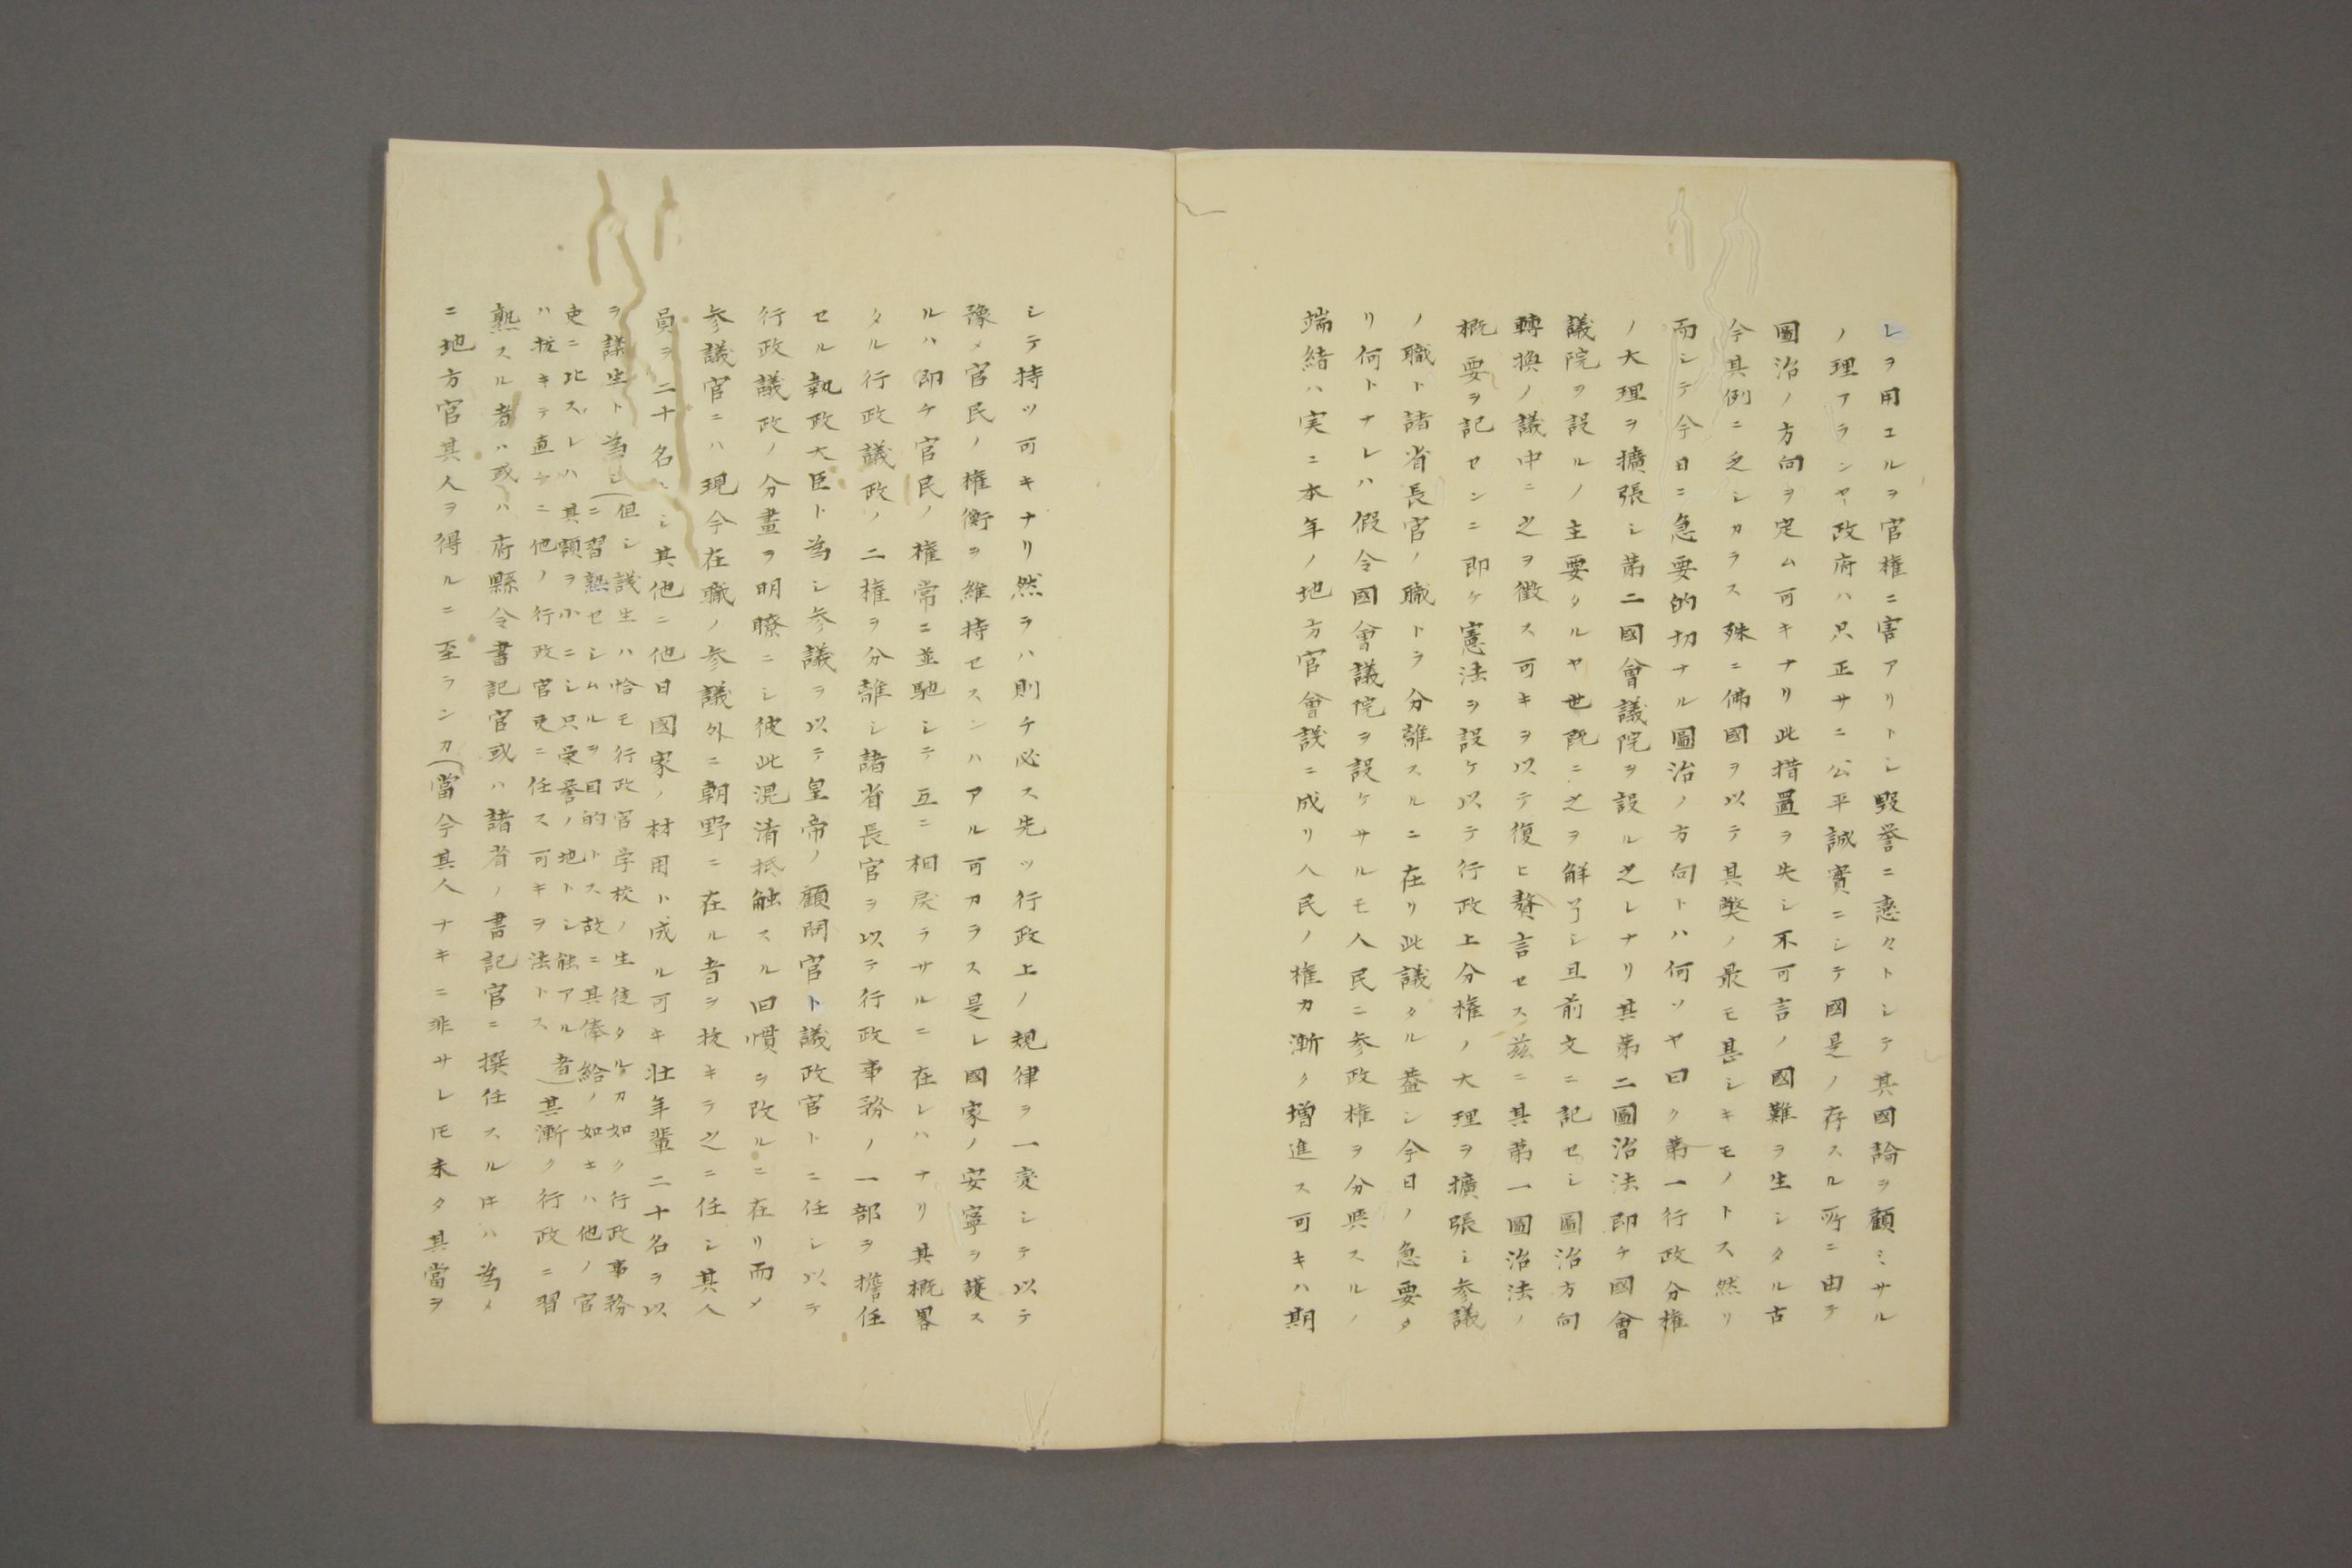 レヲ用エルヲ官権ニ害アリトシ毀誉ニ恋々トシテ其國論ヲ顧ミサル
ノ理アランヤ政府ハ只正サニ公平誠實ニシテ國是ノ存スル所ニ由テ
圖治ノ方向ヲ定ム可キナリ此措置ヲ失シ不可言ノ國難ヲ生シタル古
今其例ニ乏シカラス殊ニ佛國ヲ以テ其弊ノ最モ甚シキモノトス然リ
而シテ今日ニ急要的切ナル圖治ノ方向トハ何ソヤ曰ク第一行政分権
ノ大理ヲ擴張シ第二國會議院ヲ設ル之レナリ其第二圖治法即チ國會
議院ヲ設ルノ主要タルヤ世既ニ之ヲ解了シ且前文ニ記セシ圖治方向
轉換ノ議中ニ之ヲ徴ス可キヲ以テ復ヒ贅言セス茲ニ其第一圖治法ノ
概要ヲ記センニ即ケ憲法ヲ設ケ以テ行政上分権ノ大理ヲ擴張シ参議
ノ職ト諸省長官ノ職トヲ分離スルニ在リ此議タル蓋シ今日ノ急要タ
リ何トナレハ假令國會議院ヲ設ケサルモ人民ニ参政権ヲ分與スルノ
端緒ハ実ニ本年ノ地方官會議ニ成リ人民ノ権力漸ク増進ス可キハ期
シテ持ツ可キナリ然ラハ則チ必ス先ッ行政上ノ規律ヲ一変シテ以テ
豫メ官民ノ権衡ヲ維持セスンハアル可カラス是レ國家ノ安寧ヲ護ス
ルハ即ケ官民ノ権常ニ並馳シテ互ニ相戻ラサルニ在レハナリ其概畧
タル行政議政ノ二権ヲ分離シ諸省長官ヲ以テ行政事務ノ一部ヲ擔任
セル執政大臣ト為シ参議ヲ以テ皇帝ノ顧問官ト議政官トニ任シ以テ
行政議政ノ分畫ヲ明瞭ニシ彼此混淆抵触スル旧慣ヲ改ルニ在リ而メ
参議官ニハ現今在職ノ参議外ニ朝野ニ在ル者ヲ抜キテ之ニ任シ其人
員ヲ二十名トシ其他ニ他日國家ノ材用ト成ル可キ壮年輩二十名ヲ以
ヲ議生ト為シ(但シ議生ハ恰モ行政官学校ノ生徒タルカ如ク行政事務
ニ習熟セシムルヲ目的トス故ニ其俸給ノ如キハ他ノ官
吏ニ比スレハ其額ヲ小ニシ只栄誉ノ地トシ能アル者)
ハ抜キテ直チニ他ノ行政官吏ニ任ス可キヲ法トス其漸ク行政ニ習
熟スル者ハ或ハ府縣令書記官或ハ諸省ノ書記官ニ撰任スル時ハ為メ
ニ地方官其人ヲ得ルニ至ランカ(當今其人ナキニ非サレ𪜈未タ其當ヲ